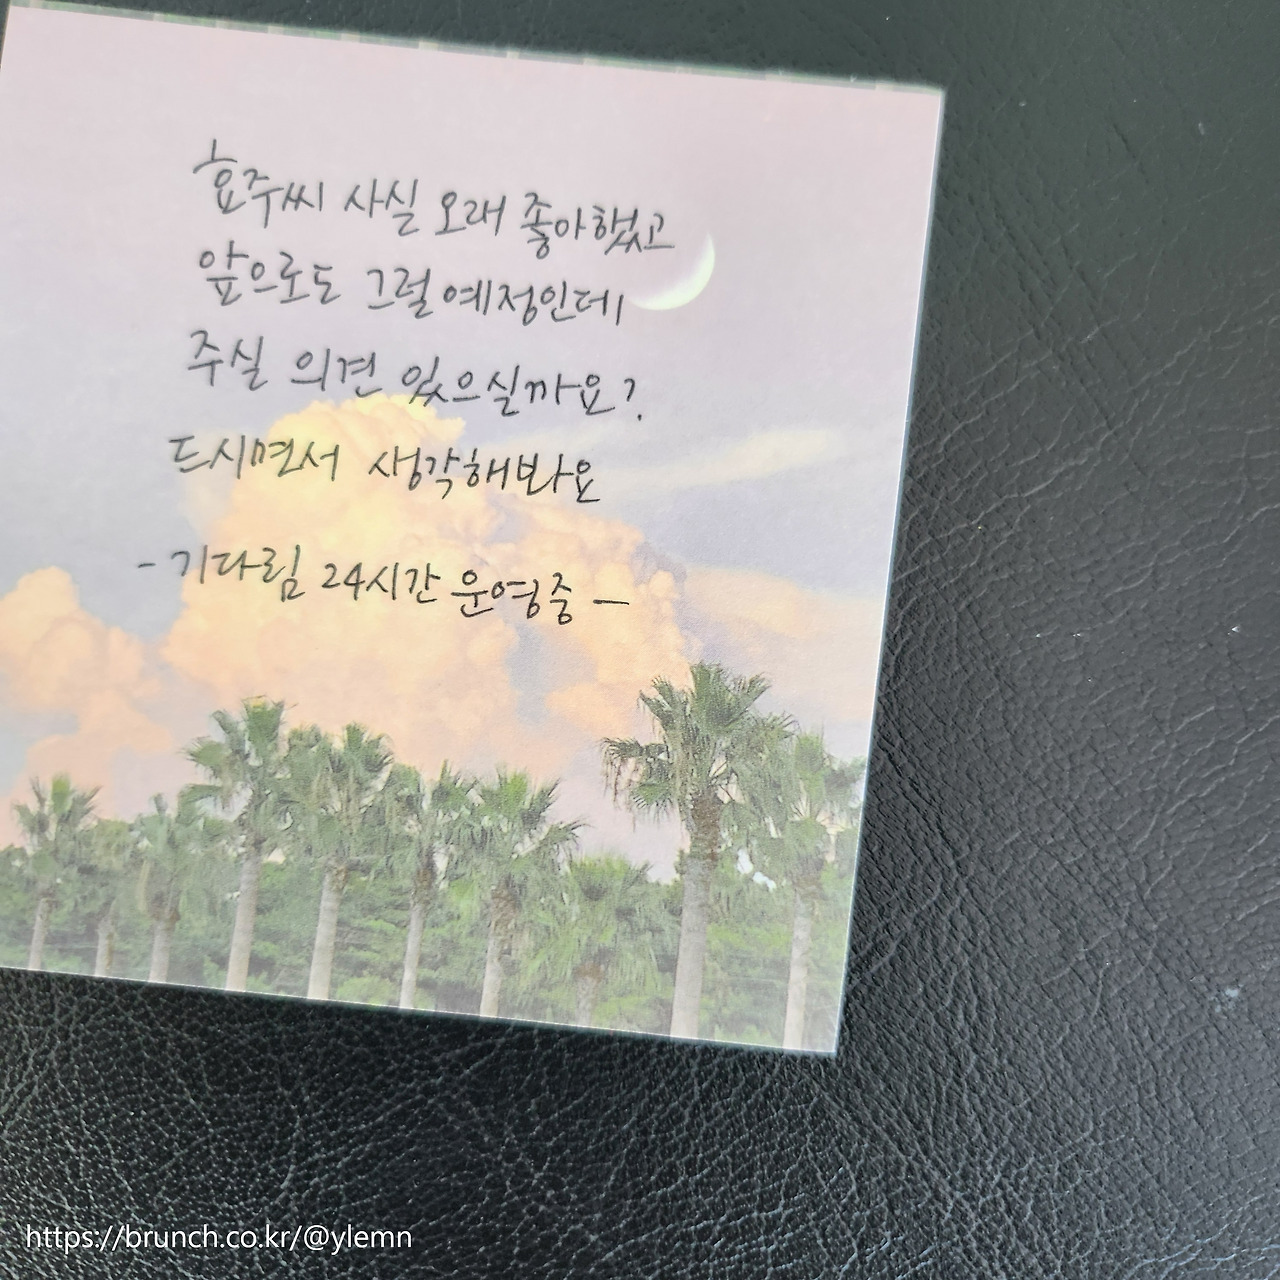 효주씨 사실 오래 좋아했고
앞으로도 그럴 예정인데
주실 의견 있으실까요?
드시면서 생각해봐요
- 기다림 24시간 운영중 -
https://brunch.co.kr/@ylemn